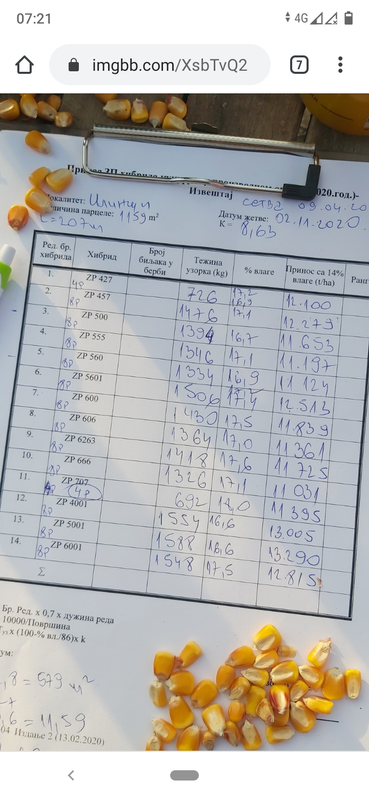 07:21
4G
imgbb.com/XsbTvQ2
7
Извештај
2020.год.)-
сетва 09.04.20
Локалитет: Илинци
Величина парцеле: 1159 m²
Датум жетве: 02.11.2020.
L=207м
K = 8,63
Ред. бр. хибрида Хибрид Број биљака у берби Тежина узорка (kg) % влаге Принос са 14% влаге (t/ha) Ранг
1. 4р ZP 427 726 17,2 12.100
2. 8р ZP 457 1476 16,3 12.273
3. 8р ZP 500 1394 17,1 11 653
4. 8р ZP 555 1346 16,7 11.197
5. 8р ZP 560 1334 17,1 11 124
6. 8р ZP 5601 1506 16,9 12.513
7. 8р ZP 600 1430 17,4 11.839
8. 8р ZP 606 1364 17,5 11.361
9. 8р ZP 6263 1418 17,0 11 725
10. 8р ZP 666 1326 17,6 11 031
11. 4р ZP 707 692 17,1 11 395
12. 8р ZP 4001 1554 13.005
13. 8р ZP 5001 1588 16,6 13.290
14. 8р ZP 6001 1548 16,6 12.815
17,5
Σ
Бр. Ред. x 0,7 x дужина реда
10000/Површина
x (100-% вл./86)x k
,8 = 579 м²
,6 = 11,59
04 Издање 2 (13.02.2020)